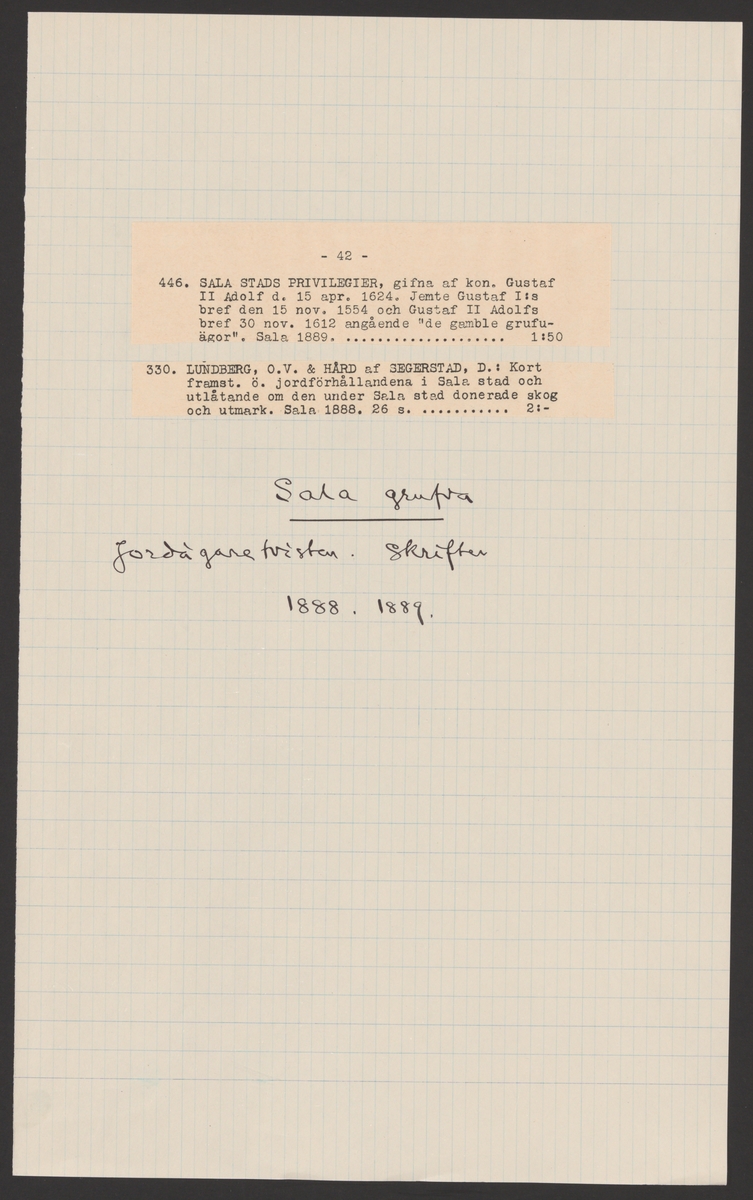 - 42 -
446. SALA STADS PRIVILEGIER, gifna af kon. Gustaf
II Adolf d. 15 apr. 1624. Jemte Gustaf I:s
bref den 15 nov. 1554 och Gustaf II Adolfs
bref 30 nov. 1612 angående "de gamble grufu-
ägor". Sala 1889. .................... 1:50
330. LUNDBERG, O.V. & HÅRD af SEGERSTAD, D.: Kort
framst. ö. jordförhållandena i Sala stad och
utlåtande om den under Sala stad donerade skog
och utmark. Sala 1888. 26 s. ........... 2:-
Sala grufva
Jordägaretvisten. Skrifter
1888. 1889.